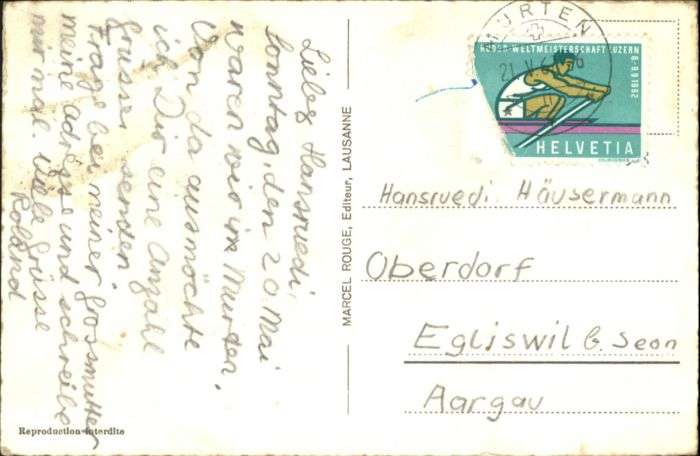 Liebs Hansruedi,
Sonntag, den 20. Mai
waren wir in Murten.
Von da aus möchte
ich Dir eine Anzahl
Grüsse senden.
Frage bei meiner Grossmutter
meine adresse und schreibe
mir mal. Viele Grüsse
Roland
Reproduction interdite
MARCEL ROUGE, Editeur, LAUSANNE
MURTEN
21. V. 6
RUDER-WELTMEISTERSCHAFT LUZERN
6-9.9.1962
HELVETIA
COURVOISIER
Hansruedi Häusermann
Oberdorf
Egliswil b. Seon
Aargau